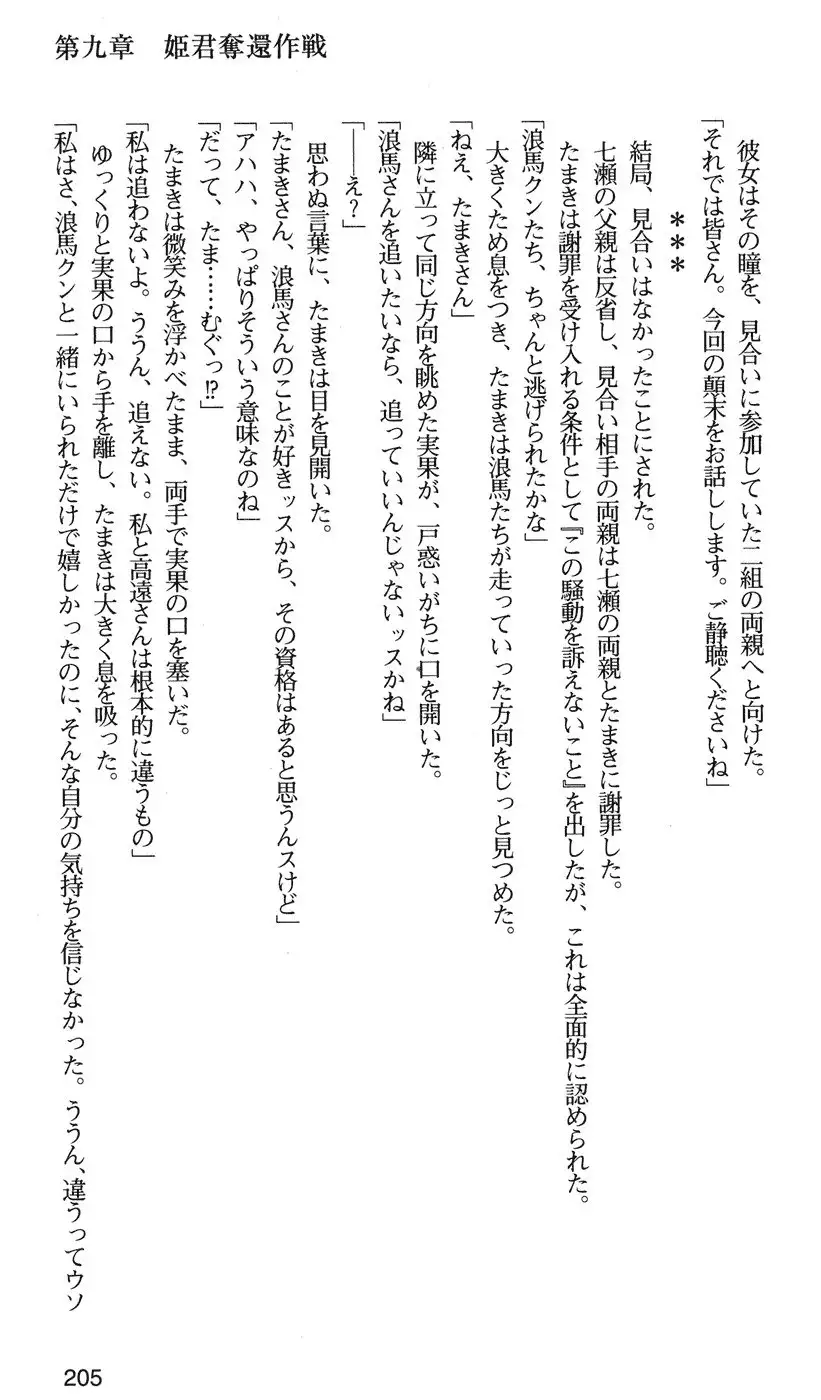 第九章　姫君奪還作戦
　彼女はその瞳を、見合いに参加していた二組の両親へと向けた。
「それでは皆さん。今回の顛末をお話しします。ご静聴くださいね」
＊＊＊
　結局、見合いはなかったことにされた。
　七瀬の父親は反省し、見合い相手の両親は七瀬の両親とたまきに謝罪した。
　たまきは謝罪を受け入れる条件として『この騒動を訴えないこと』を出したが、これは全面的に認められた。
「浪馬クンたち、ちゃんと逃げられたかな」
　大きくため息をつき、たまきは浪馬たちが走っていった方向をじっと見つめた。
「ねえ、たまきさん」
　隣に立って同じ方向を眺めた実果が、戸惑いがちに口を開いた。
「浪馬さんを追いたいなら、追っていいんじゃないッスかね」
「――え？」
　思わぬ言葉に、たまきは目を見開いた。
「たまきさん、浪馬さんのことが好きッスから、その資格はあると思うんスけど」
「アハハ、やっぱりそういう意味なのね」
「だって、たま……むぐっ!?」
　たまきは微笑みを浮かべたまま、両手で実果の口を塞いだ。
「私は追わないよ。ううん、追えない。私と高遠さんは根本的に違うもの」
　ゆっくりと実果の口から手を離し、たまきは大きく息を吸った。
「私はさ、浪馬クンと一緒にいられただけで嬉しかったのに、そんな自分の気持ちを信じなかった。ううん、違うってウソ
205